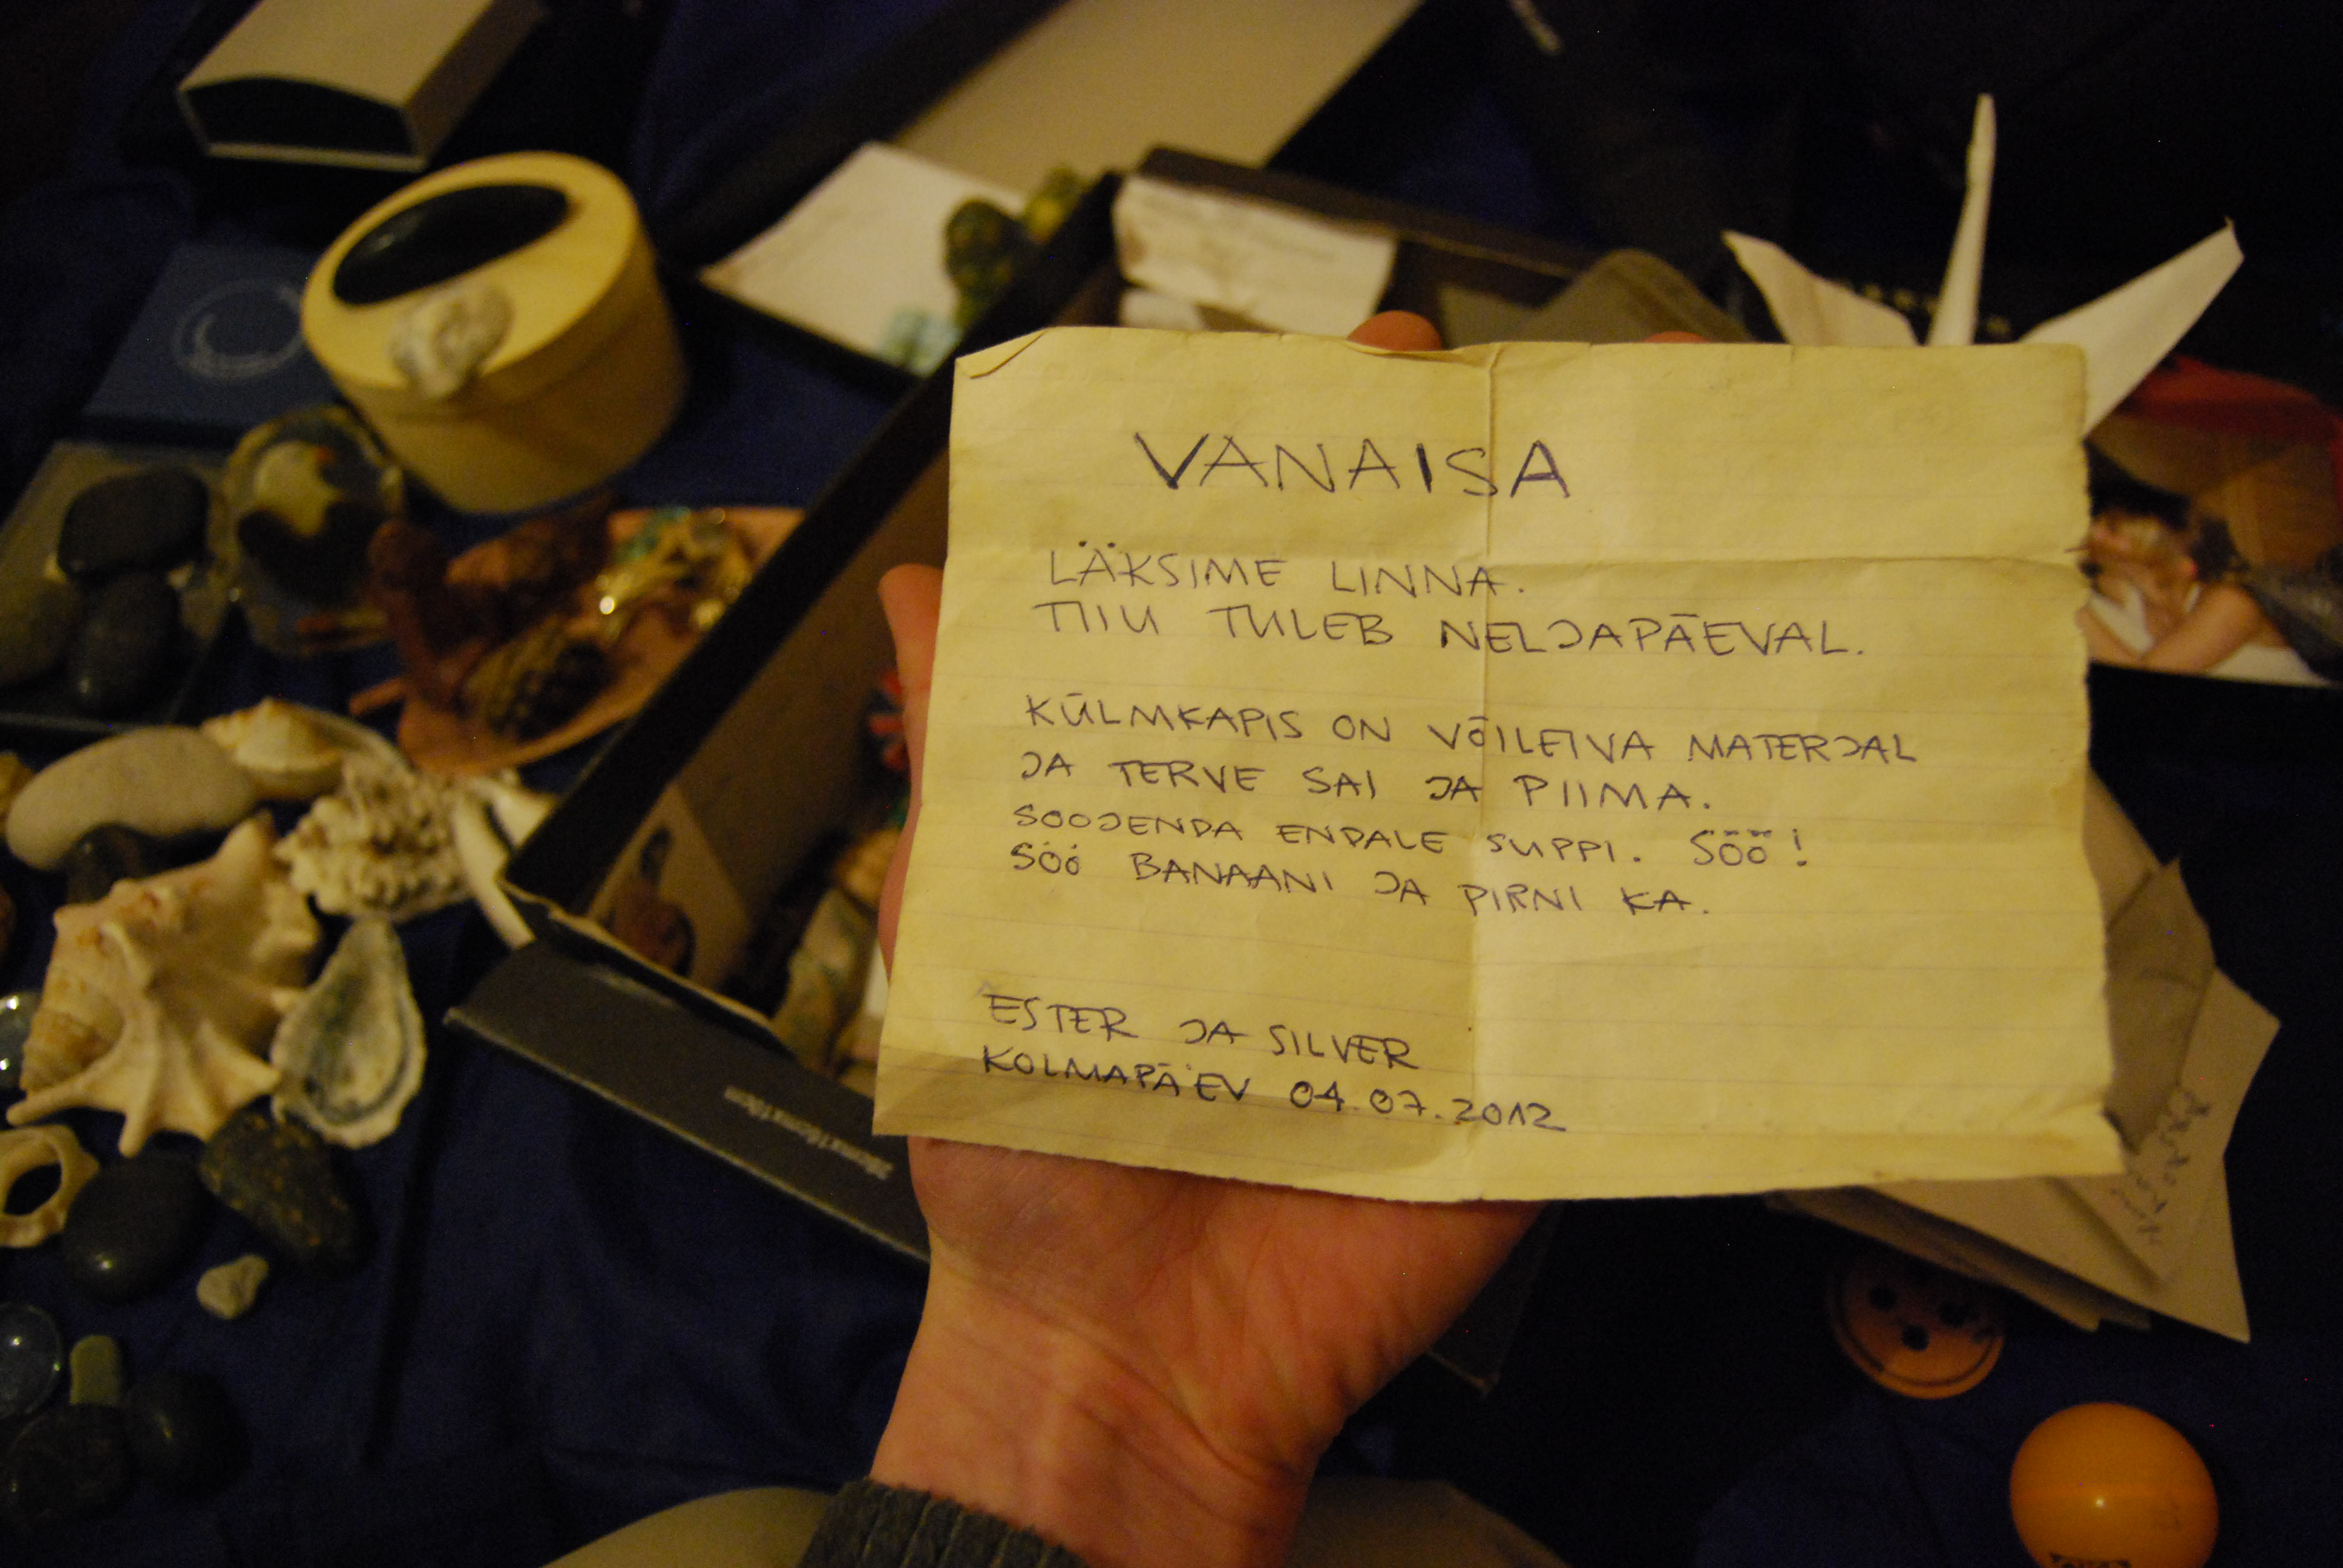 VANAISA
LÄKSIME LINNA.
TIIU TULEB NELJAPÄEVAL.
KÜLMKAPIS ON VÕILEIVA MATERJAL
JA TERVE SAI JA PIIMA.
SOOJENDA ENDALE SUPPI. SÖÖ!
SÖÖ BANAANI JA PIRNI KA.
ESTER JA SILVER
KOLMAPÄEV 04.07.2012